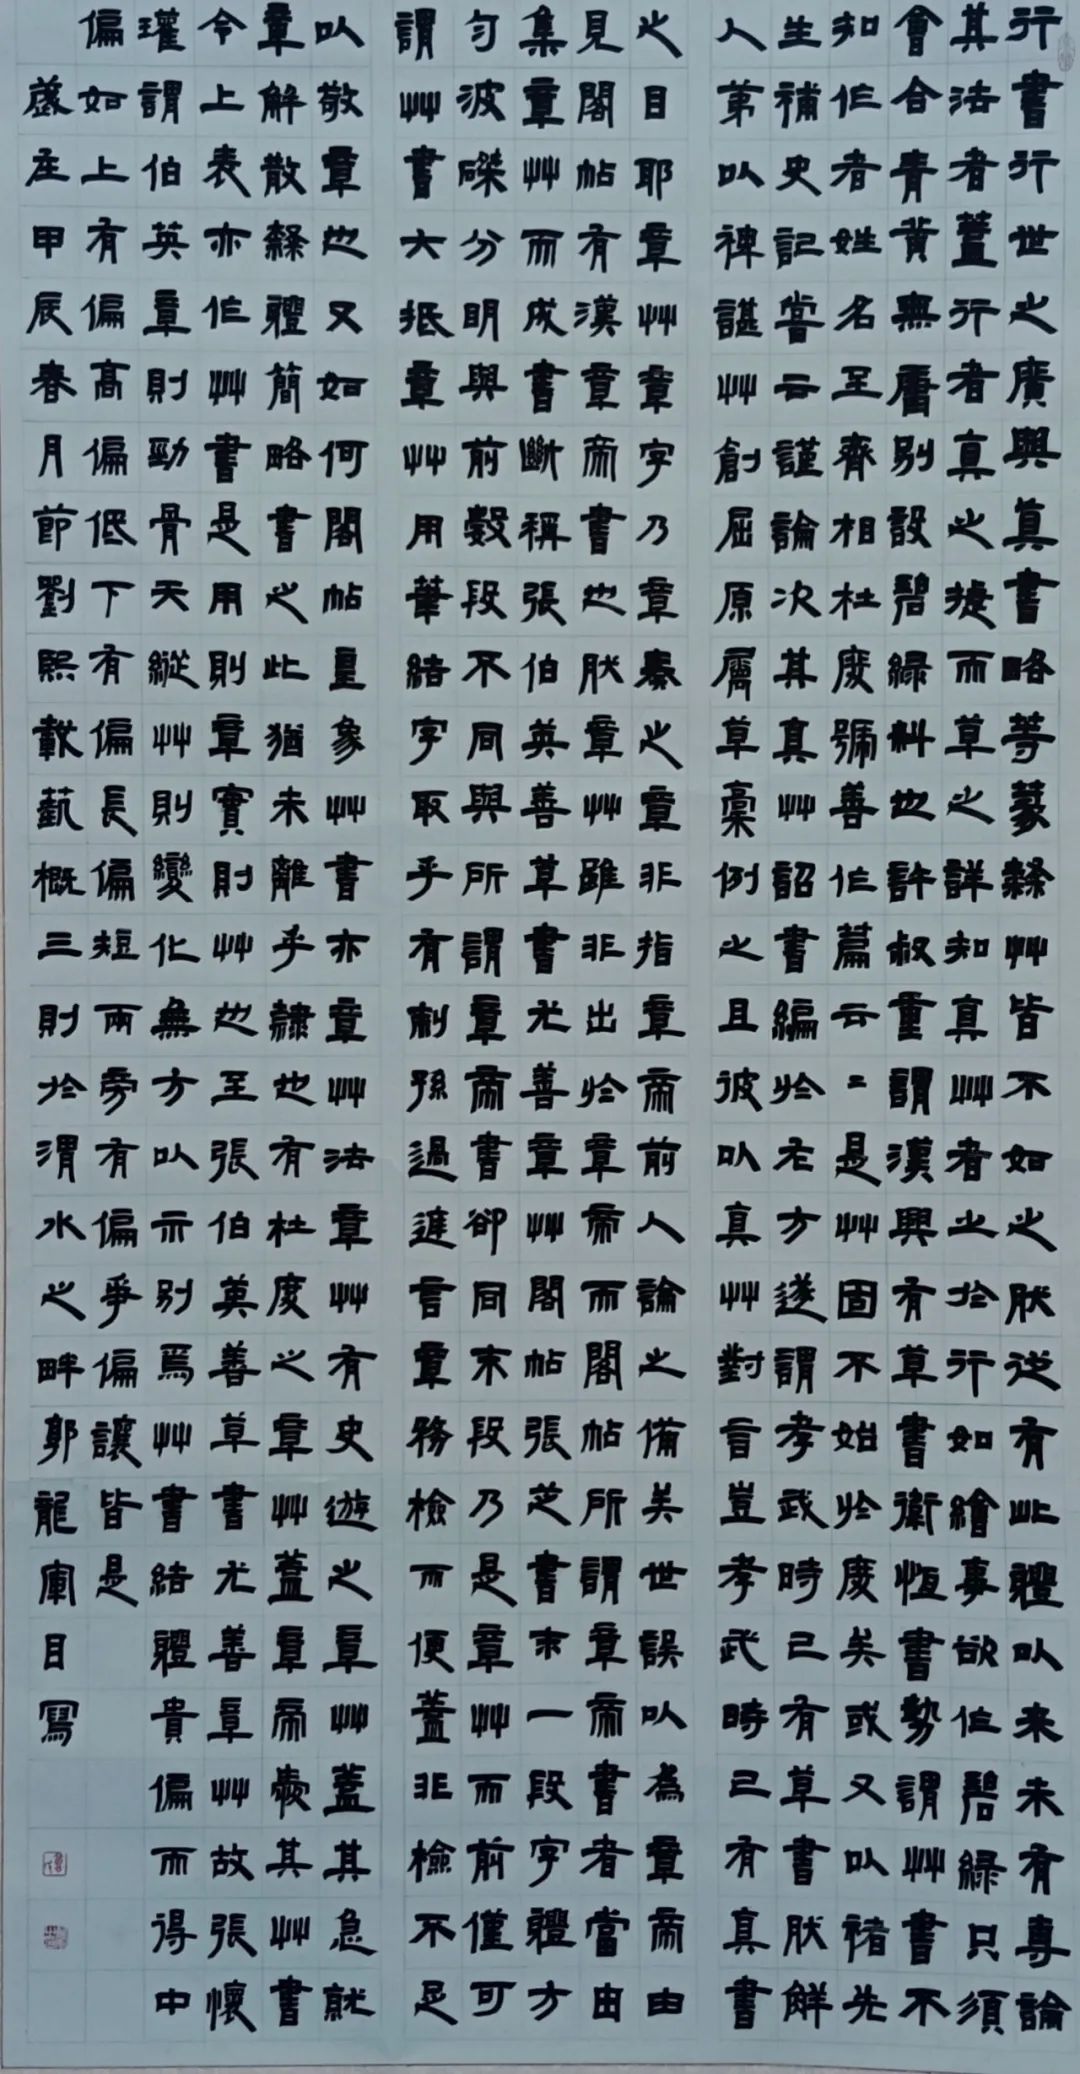 行書行世之廣與真書略等篆隸艸皆不如之肰從有此體以来未有專論
其法者蓋行者真之捷而草之詳知真艸者之於行如繪事欲作碧綠只須
會合青黃無庸別設碧綠料也許叔重謂漢興有草書衛恆書勢謂艸書不
知作者姓名至齊相杜度號善作篇云二是艸固不始於度矣或又以褚先
生補史記嘗云謹論次其真艸詔書編於左方遂謂孝武時已有草書肰解
人第以裨諶艸創屈原屬草稾例之且彼以真艸對言豈孝武時已有真書
之目耶章艸章字乃章奏之章非指章帝前人論之備美世誤以為章帝由
見閣帖有漢章帝書也肰章艸雖非出於章帝而閣帖所謂章帝書者當由
集章艸而成書斷稱張伯英善草書尤善章艸閣帖張芝書末一段字體方
勻波磔分明與前數段不同與所謂章帝書卻同末段乃是章艸而前僅可
謂艸書大抵章艸用筆結字取乎有制孫過進言章務檢而便蓋非檢不足
以敬章也又如何閣帖皇象艸書亦章艸法章艸有史遊之章艸蓋其急就
章解散隸體簡略書之此猶未離乎隸也有杜度之章艸蓋章帝愛其艸書
令上表亦作艸書是用則章實則艸也至張伯英善草書尤善章艸故張懷
瓘謂伯英章則勁骨天縱艸則變化無方以示別焉艸書結體貴偏而得中
偏如上有偏高偏低下有偏長偏短兩旁有偏爭偏讓皆是
歲在甲辰春月節劉熙載藝概三則於渭水之畔郭龍軍目寫